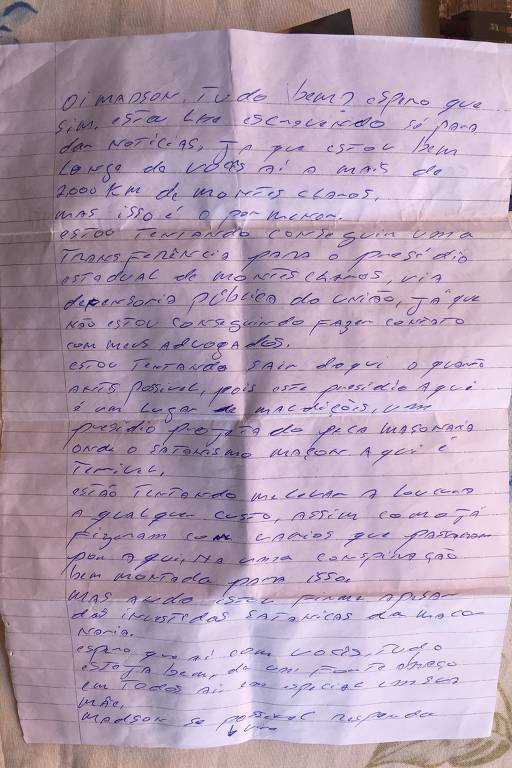 Oi MADSON, Tudo bem? espero que
sim, estou lhe escrevendo só para
dar NOTÍCIAS, já que estou bem
Longe de vocês aí a mais de
2.000 Km de MONTES CLAROS,
mas isso é o por menor.
estou TENTANDO conseguir uma
TRANSFERÊNCIA para o presídio
estadual de MONTES CLAROS, via
defensoria pública da união, já que
não estou conseguindo fazer contato
com meus ADVOGADOS.
estou TENTANDO sair daqui o quanto
antes possível, pois este presídio aqui
é um lugar de maldições, um
presídio projetado pela maçonaria
onde o satanismo maçon aqui é
Terivel,
estão TENTANDO me levar a loucura
a qualquer custo, assim como já
fizeram com varios que passaram
por aqui, há uma conspiração
bem montada para isso.
mas ando estou firme apesar
das investidas satanicas da maço
naria.
espero que aí com vocês, tudo
esteja bem, dê um forte abraço
em Todos aí em especial em sua
mãe,
MADSON se possivel responda